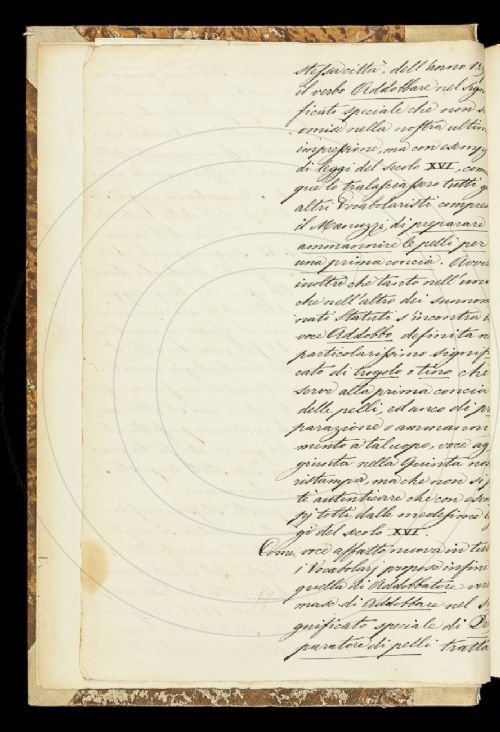 stessa città, dell'anno 12
il verbo Addobbare nel sign
ficato speciale che non s
omise nella nostra ultim
impressione, ma con esempj
di leggi del secolo XVI, com
que lo tralasciassero tutti g
altri Vocabolaristi compre
il Manuzzi, di preparare
ammannire le pelli per
una prima concia. Avver
inoltre che tanto nell'uno
che nell'altro dei summen
nati Statuti s'incontra
voce Addobbo, definita n
particolarissimo signifi
cato di trogolo o tino che
serve alla prima concia
delle pelli, ed anco di pr
parazione o ammanni
mento a tal uopo, voce ag
giunta nella Quinta nos
ristampa, ma che non si p
tè autenticare che con esem
pj tolti dalle medesime
gi del secolo XVI.
Come voce affatto nuova in tut
i Vocabolarj propose infine
quella di Addobbatore ver
masc. di Addobbare nel s
gnificato speciale di
paratore di pelli tratta